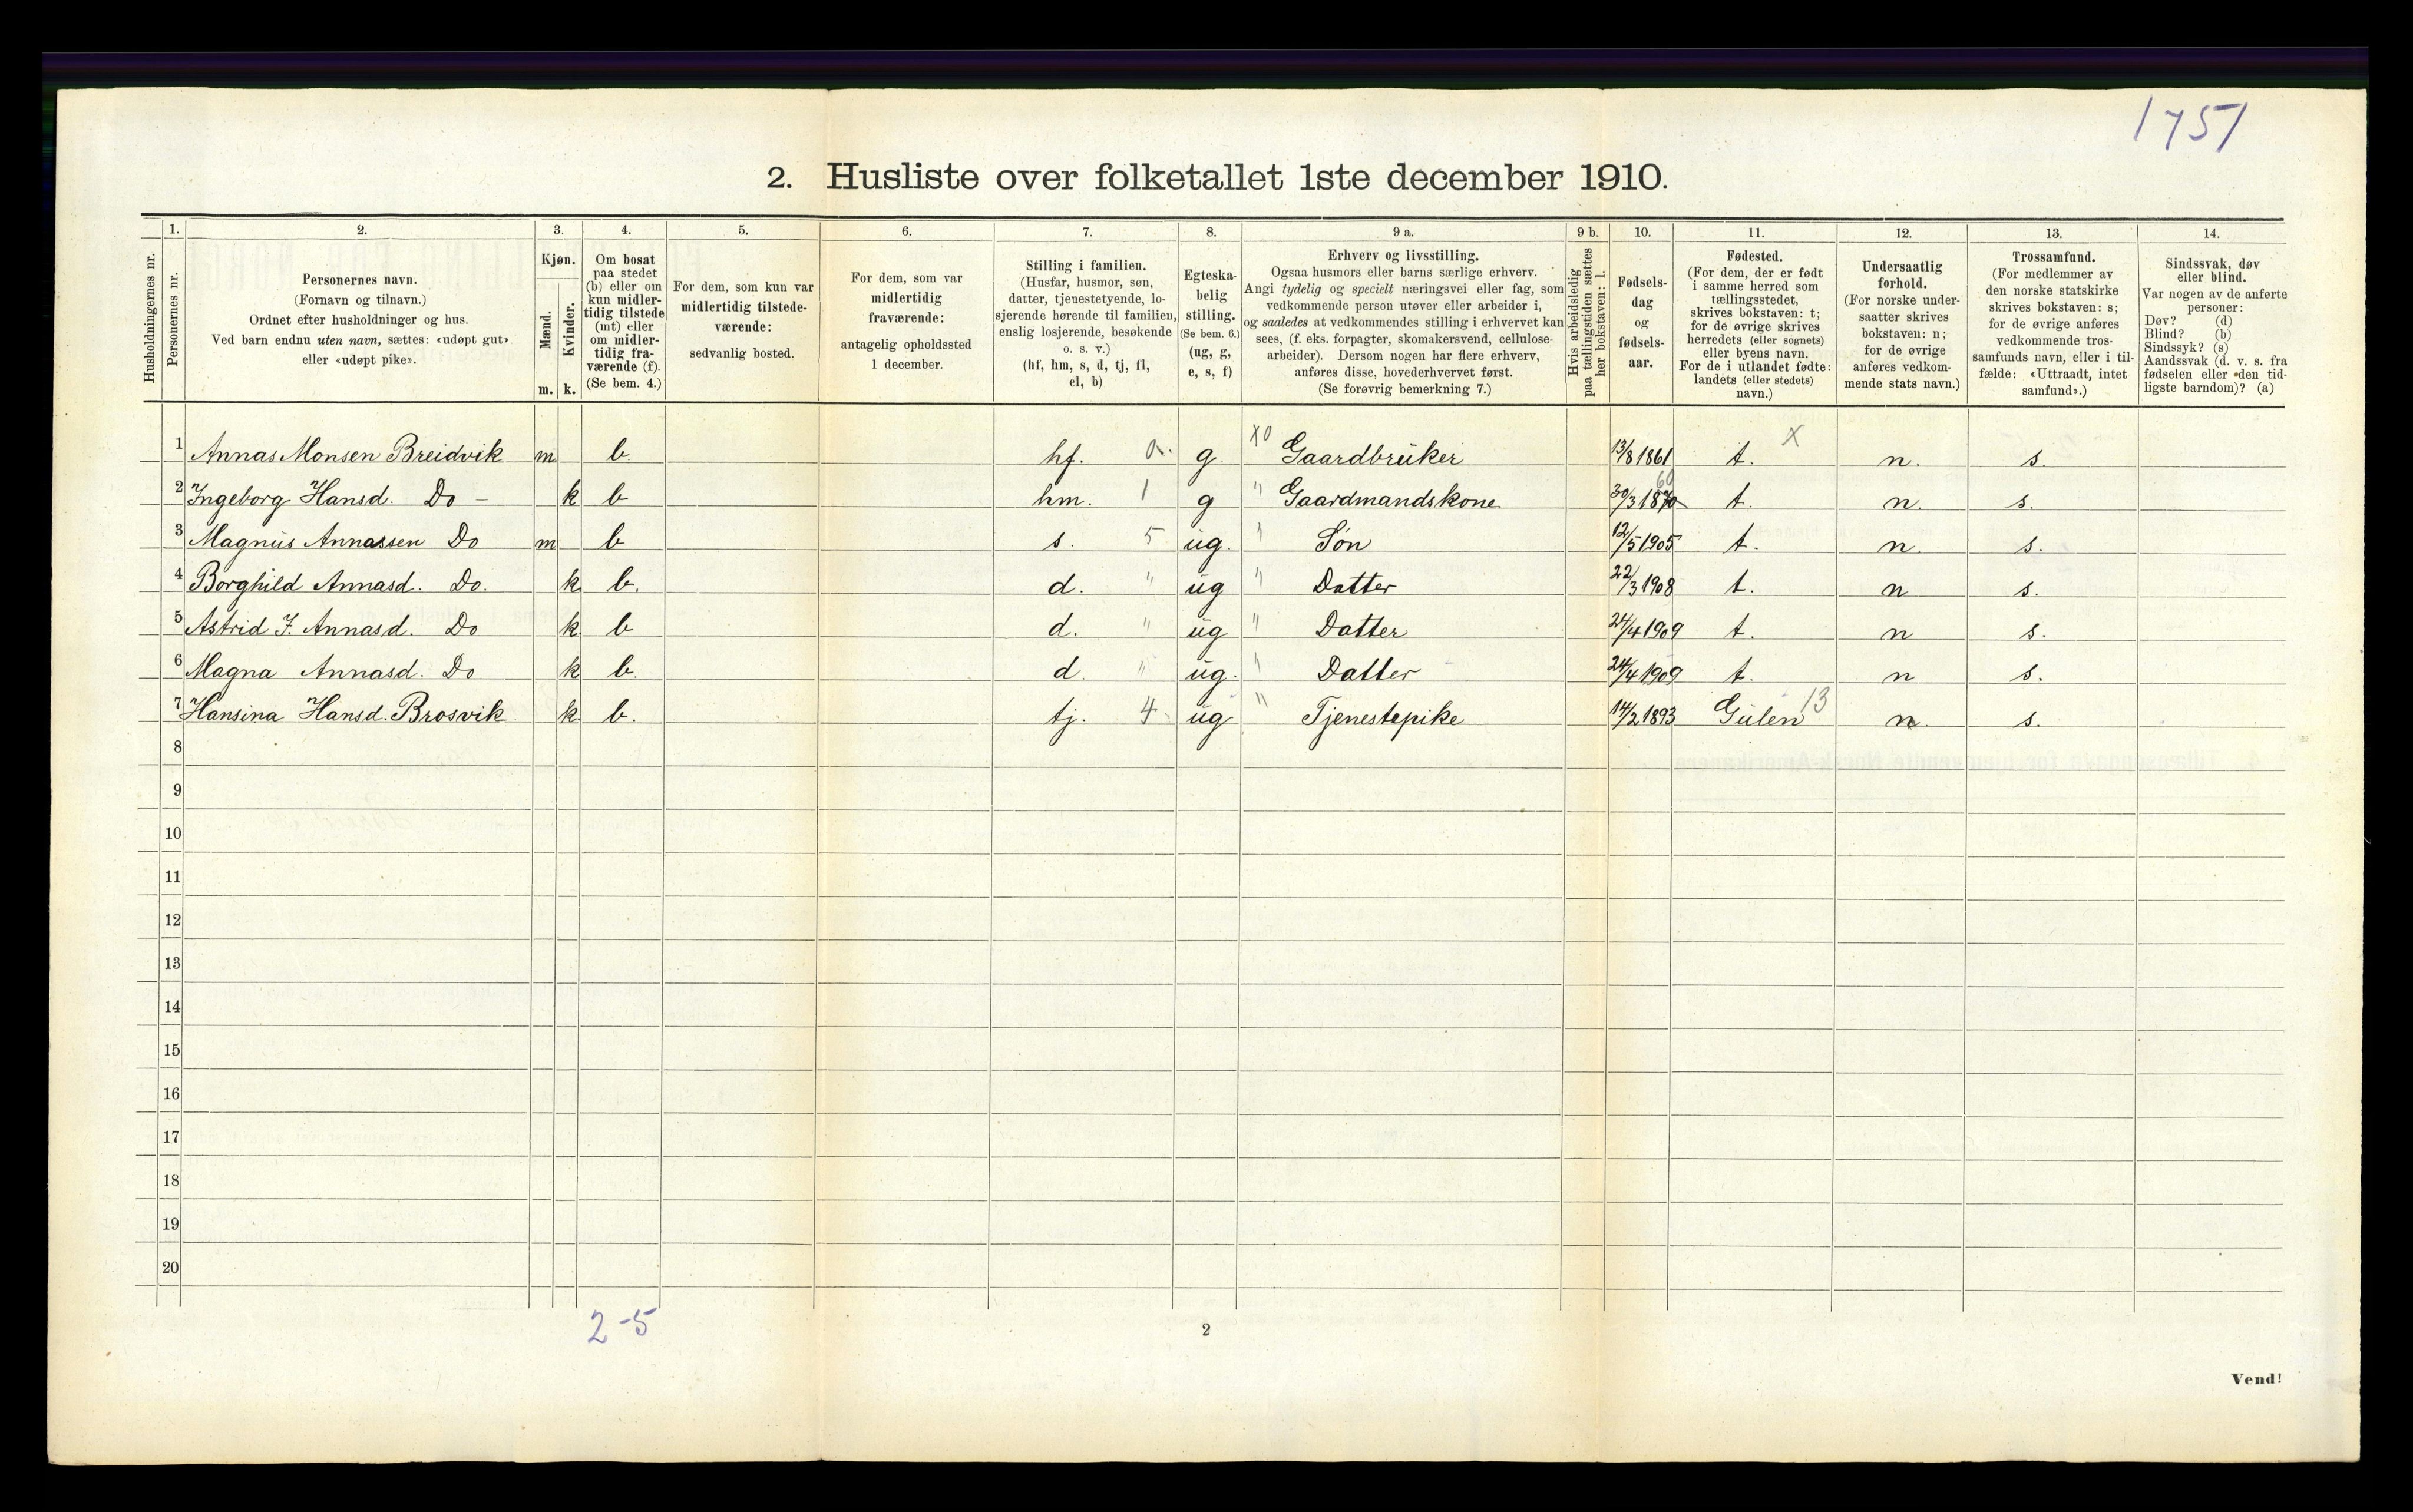 1751
2. Husliste over folketallet 1ste december 1910.
Husholdningernes nr.
1. Personernes nr.
2. Personernes navn.
(Fornavn og tilnavn.)
Ordnet efter husholdninger og hus.
Ved barn endnu uten navn, sættes: «udøpt gut»
eller «udøpt pike».
3. Kjøn.
Mænd. m.
Kvinder. k.
4. Om bosat
paa stedet
(b) eller om
kun midler-
tidig tilstede
(mt) eller
om midler-
tidig fra-
værende (f).
(Se bem. 4.)
5. For dem, som kun var
midlertidig tilstede-
værende:
sedvanlig bosted.
6. For dem, som var
midlertidig
fraværende:
antagelig opholdssted
1 december.
7. Stilling i familien.
(Husfar, husmor, søn,
datter, tjenestetyende, lo-
sjerende hørende til familien,
enslig losjerende, besøkende
o. s. v.)
(hf, hm, s, d, tj, fl,
el, b)
8. Egteska-
belig
stilling.
(Se bem. 6.)
(ug, g,
e, s, f)
9 a. Erhverv og livsstilling.
Ogsaa husmors eller barns særlige erhverv.
Angi tydelig og specielt næringsvei eller fag, som
vedkommende person utøver eller arbeider i,
og saaledes at vedkommendes stilling i erhvervet kan
sees, (f. eks. forpagter, skomakersvend, cellulose-
arbeider). Dersom nogen har flere erhverv,
anføres disse, hovederhvervet først.
(Se forøvrig bemerkning 7.)
9 b. Hvis arbeidsledig
paa tællingstiden sættes
her bokstaven: l.
10. Fødsels-
dag
og
fødsels-
aar.
11. Fødested.
(For dem, der er født
i samme herred som
tællingsstedet,
skrives bokstaven: t;
for de øvrige skrives
herredets (eller sognets)
eller byens navn.
For de i utlandet fødte:
landets (eller stedets)
navn.)
12. Undersaatlig
forhold.
(For norske under-
saatter skrives
bokstaven: n;
for de øvrige
anføres vedkom-
mende stats navn.)
13. Trossamfund.
(For medlemmer av
den norske statskirke
skrives bokstaven: s;
for de øvrige anføres
vedkommende tros-
samfunds navn, eller i til-
fælde: «Uttraadt, intet
samfund».)
14. Sindssvak, døv
eller blind.
Var nogen av de anførte
personer:
Døv? (d)
Blind? (b)
Sindssyk? (s)
Aandssvak (d. v. s. fra
fødselen eller den tid-
ligste barndom)? (a)
1 Annas Monsen Breidvik m b hf. g X0 Gaardbruker 13/8 1861 t. X n. s.
2 Ingeborg Hansd. Do - k b hm. 1 g " Gaardmandskone 30/3 1870 60 t. n. s.
3 Magnus Annassen Do m b s. 5 ug. " Søn 12/5 1905 t. n. s.
4 Borghild Annasd. Do. k b. d. " ug " Datter 22/3 1908 t. n s.
5 Astrid J. Annasd. Do k b d. " ug " Datter 24/4 1909 t. n s.
6 Magna Annasd. Do k b. d. " ug. " Datter 24/4 1909 t. n s.
7 Hansina Hansd. Brosvik k. b. tj. 4 ug " Tjenestepike 14/2 1893 Gulen 13 n s.
8
9
10
11
12
13
14
15
16
17
18
19
20
2-5
2
Vend!